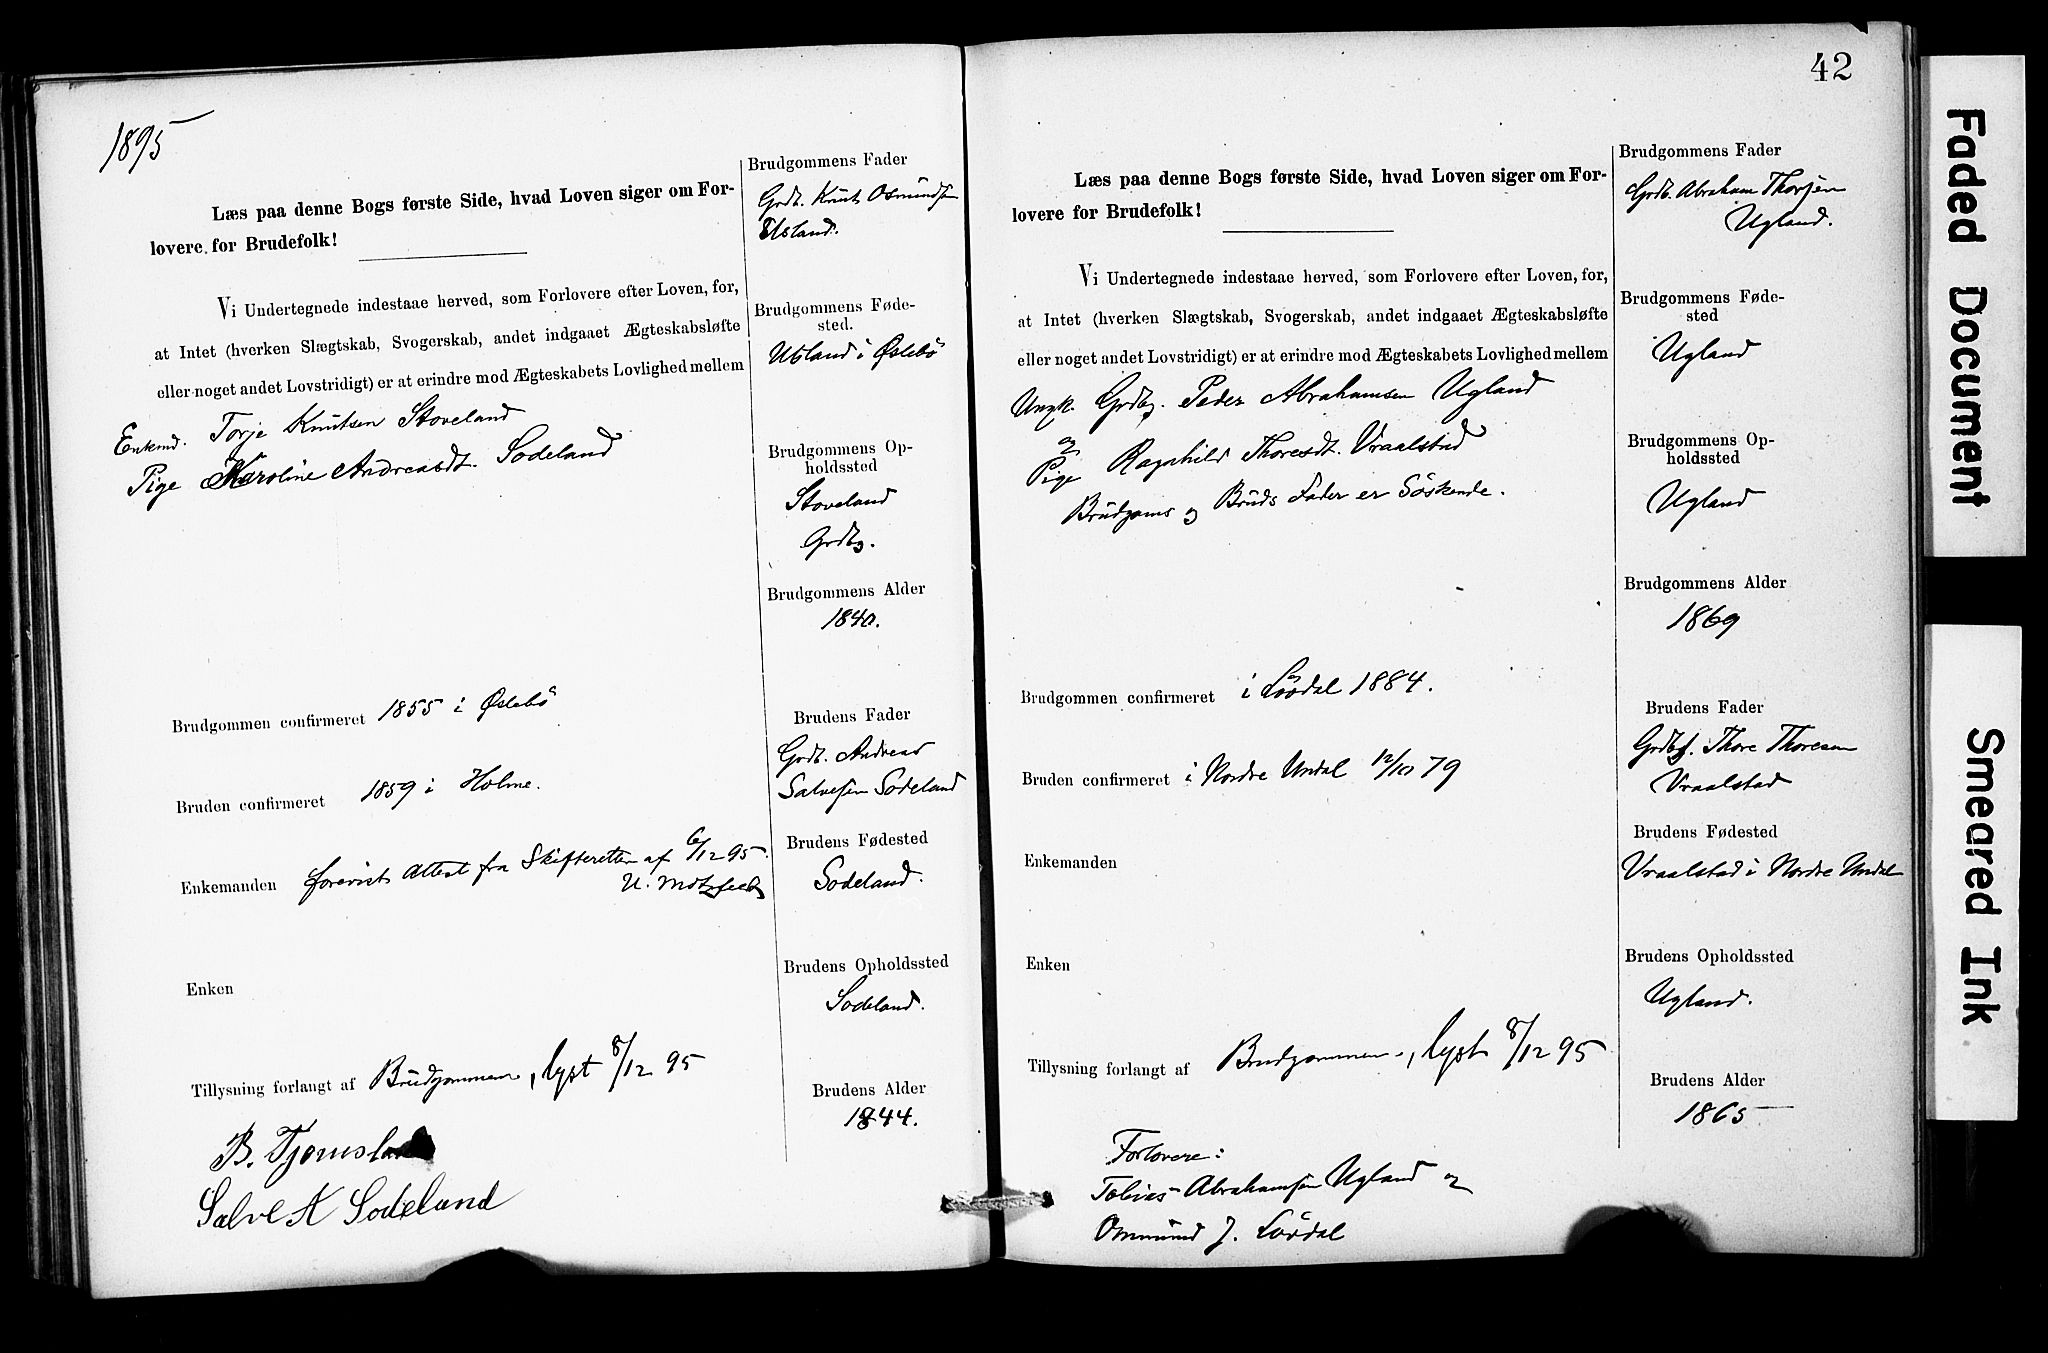 1895
Læs paa denne Bogs første Side, hvad Loven siger om For-
lovere for Brudefolk!
Vi Undertegnede indestaae herved, som Forlovere efter Loven, for,
at Intet (hverken Slægtskab, Svogerskab, andet indgaaet Ægteskabsløfte
eller noget andet Lovstridigt) er at erindre mod Ægteskabets Lovlighed mellem
Enkmd. Torje Knutsen Stoveland
Pige Karoline Andreasdt. Sodeland
Brudgommen confirmeret 1855 i Øslebö
Bruden confirmeret 1859 i Holme.
Enkemanden forevist Attest fra Skifteretten af 6/12 95.
Enken
Tillysning forlangt af Brudgommen, lyst 8/12 95
B. Tjomsland
Salve A Sodeland
Brudgommens Fader
Grdb. Knut Osmundsen
BrudgommensFøde-
sted.
i Øslebö
Brudgommens Op-
holdssted
Stoveland
Grdbg.
Brudgommens Alder
1840.
Brudens Fader
Grdb. Andreas
Salvesen Sodeland
Brudens Fødested
Sodeland.
Brudens Opholdssted
Sodeland.
Brudens Alder
1844.
42
Læs paa denne Bogs første Side, hvad Loven siger om For-
lovere for Brudefolk!
Vi Undertegnede indestaae herved, som Forlovere efter Loven, for,
at Intet (hverken Slægtskab, Svogerskab, andet indgaaet Ægteskabsløfte
eller noget andet Lovstridigt) er at erindre mod Ægteskabets Lovlighed mellem
Ungk. Grdbg. Peder Abrahamsen Ugland
og
Pige Ragnhild Thoresdt. Vraalstad
Brudgoms og Bruds Fader er Söskende.
Brudgommen confirmeret i Lövdal 1884.
Bruden confirmeret i Nordre Undal 12/10 79
Enkemanden
Enken
Tillysning forlangt af Brudgommen, lyst 8/12 95
Forlovere:
Tobias Abrahamsen Ugland og
Ommund J. Lövdal
Brudgommens Fader
Grdb. Abraham Thorjen
Ugland.
Brudgommens Føde-
sted
Ugland
Brudgommens Op-
holdssted
Ugland
Brudgommens Alder
1869
Brudens Fader
Thore Thoresen
Vraalstad
Brudens Fødested
Vraalstad i Nordre Undal
Brudens Opholdssted
Ugland.
Brudens Alder
1865
Faded Document
Smeared Ink